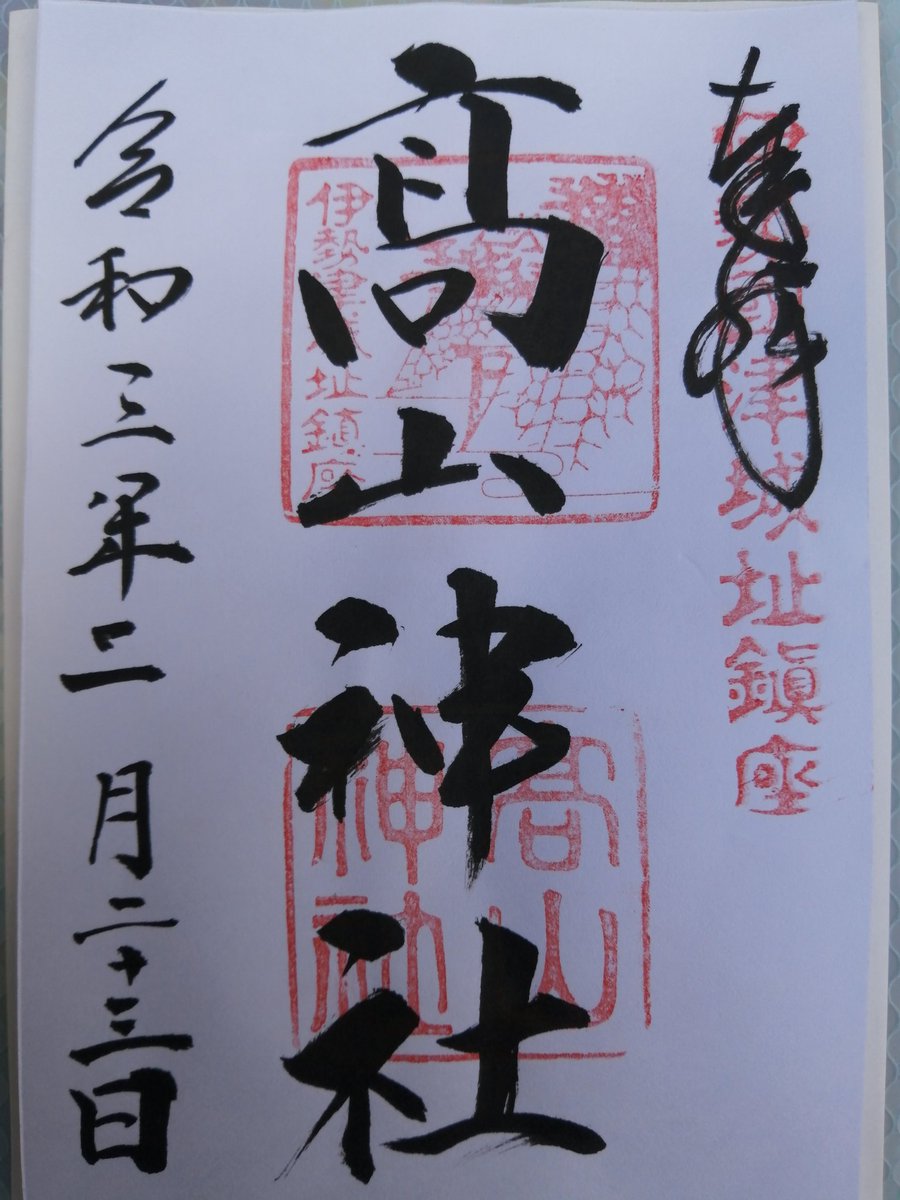 奉拝
伊勢國津城址鎮座
髙山神社
伊勢津城址鎮座
高山
神社
令和三年二月二十三日